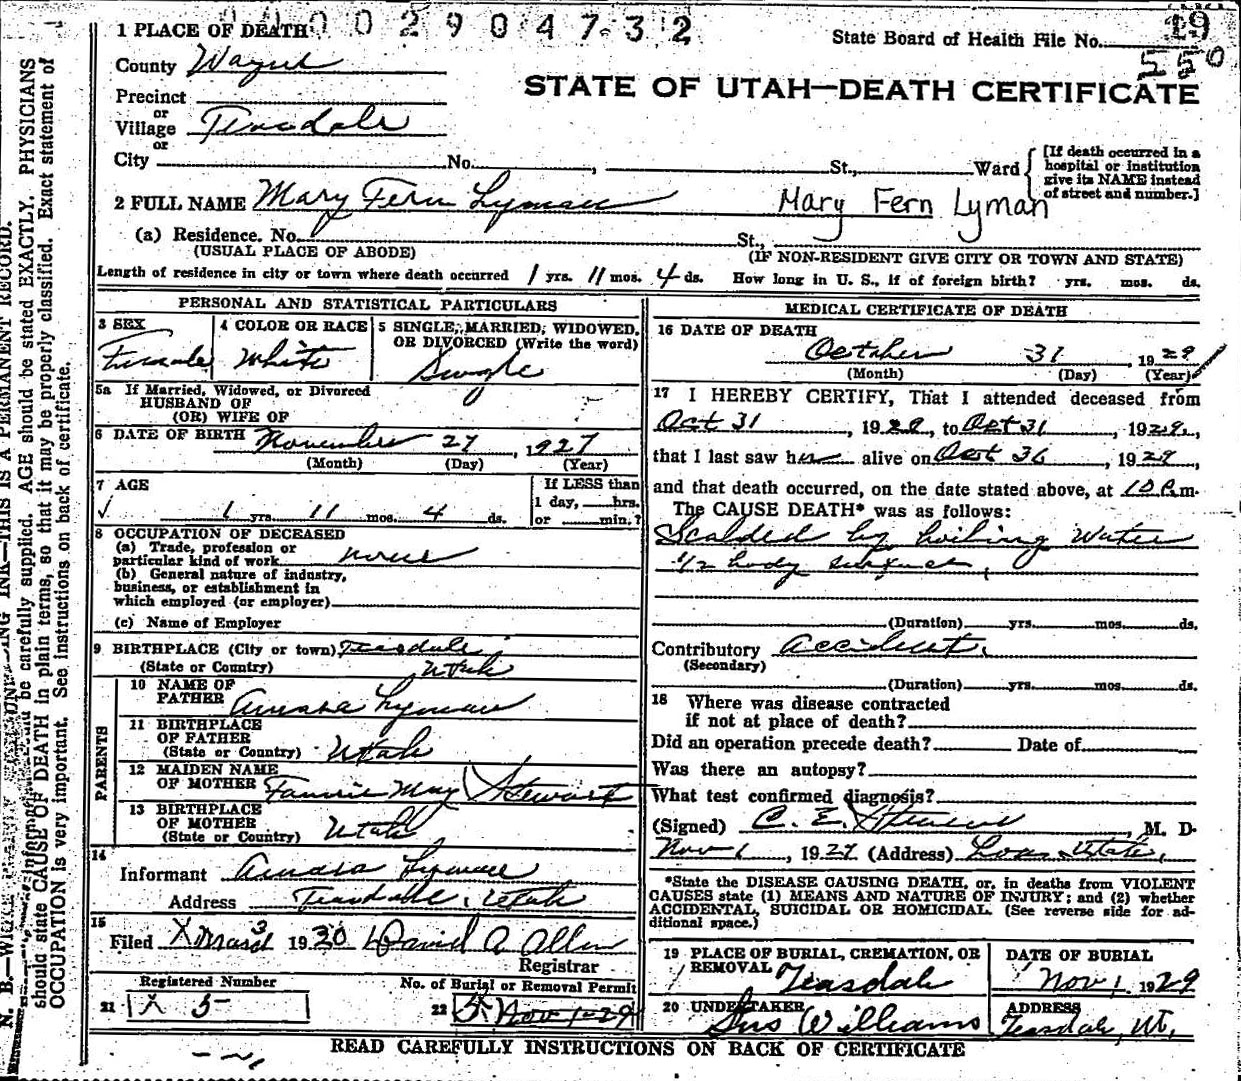 0000290473 2
1 PLACE OF DEATH
State Board of Health File No. 19
550
County Wayne
STATE OF UTAH—DEATH CERTIFICATE
Precinct
or
Village Teasdale
or
City No. , St., Ward
[If death occurred in a
hospital or institution
give its NAME instead
of street and number.]
2 FULL NAME Mary Fern Lyman Mary Fern Lyman
(a) Residence. No. St.,
(USUAL PLACE OF ABODE) (IF NON-RESIDENT GIVE CITY OR TOWN AND STATE)
Length of residence in city or town where death occurred 1 yrs. 11 mos. 4 ds. How long in U. S., if of foreign birth? yrs. mos. ds.
PERSONAL AND STATISTICAL PARTICULARS
3 SEX 4 COLOR OR RACE 5 SINGLE, MARRIED, WIDOWED,
OR DIVORCED (Write the word)
Female White Single
5a If Married, Widowed, or Divorced
HUSBAND OF
(OR) WIFE OF
6 DATE OF BIRTH November 27, 1927
(Month) (Day) (Year)
7 AGE If LESS than
1 day, hrs.
1 yrs. 11 mos. 4 ds. or min.?
8 OCCUPATION OF DECEASED
(a) Trade, profession or
particular kind of work none
(b) General nature of industry,
business, or establishment in
which employed (or employer)
(c) Name of Employer
9 BIRTHPLACE (City or town) Teasdale
(State or Country) Utah
PARENTS
10 NAME OF
FATHER Amasa Lyman
11 BIRTHPLACE
OF FATHER
(State or Country) Utah
12 MAIDEN NAME
OF MOTHER Fannie May Stewart
13 BIRTHPLACE
OF MOTHER
(State or Country) Utah
14
Informant Amasa Lyman
Address Teasdale, Utah
15
Filed X March 3 1930 David A Allen
Registrar
Registered Number No. of Burial or Removal Permit
21 X 5 22 5 Nov 1-29
MEDICAL CERTIFICATE OF DEATH
16 DATE OF DEATH
October 31, 1929
(Month) (Day) (Year)
17 I HEREBY CERTIFY, That I attended deceased from
Oct 31, 1929, to Oct 31, 1929,
that I last saw her alive on Oct 30, 1929,
and that death occurred, on the date stated above, at 10 P.m.
The CAUSE DEATH* was as follows:
Scalded by boiling Water
1/2 body surface,
(Duration) yrs. mos. ds.
Contributory accident.
(Secondary)
(Duration) yrs. mos. ds.
18 Where was disease contracted
if not at place of death?
Did an operation precede death? Date of
Was there an autopsy?
What test confirmed diagnosis?
(Signed) C. E. , M. D.
Nov 1, 1929 (Address) Loa, Utah,
*State the DISEASE CAUSING DEATH, or, in deaths from VIOLENT
CAUSES state (1) MEANS AND NATURE OF INJURY; and (2) whether
ACCIDENTAL, SUICIDAL OR HOMICIDAL. (See reverse side for ad-
ditional space.)
19 PLACE OF BURIAL, CREMATION, OR
REMOVAL Teasdale
DATE OF BURIAL
Nov 1, 1929
20 UNDERTAKER
Gus Williams
ADDRESS
Teasdale, Ut.
READ CAREFULLY INSTRUCTIONS ON BACK OF CERTIFICATE
INK—THIS IS A PERMANENT RECORD.
be carefully supplied. AGE should be stated EXACTLY. PHYSICIANS
should state CAUSE OF DEATH in plain terms, so that it may be properly classified. Exact statement of
OCCUPATION is very important. See instructions on back of certificate.